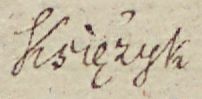 Księżyk